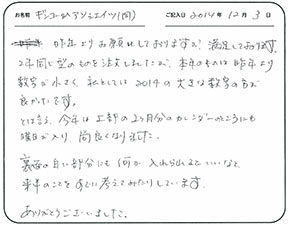 お名前 ギンコーゲアソシエイツ(同) ご記入日 2014年12月3日
昨年よりお願いしておりますが満足しております。
2年同じ型のものを注文しましたが、本年のものは昨年より
数字が小さく、私としては2014の大きな数字の方が
良かったです。
とは言え、今年は上部の2ヶ月分のカレンダーのところにも
曜日が入り、尚良くなりました。
裏面の白い部分にも何か入れられるといいなと
来年のことをすでに考えてみたりしています。
ありがとうございました。